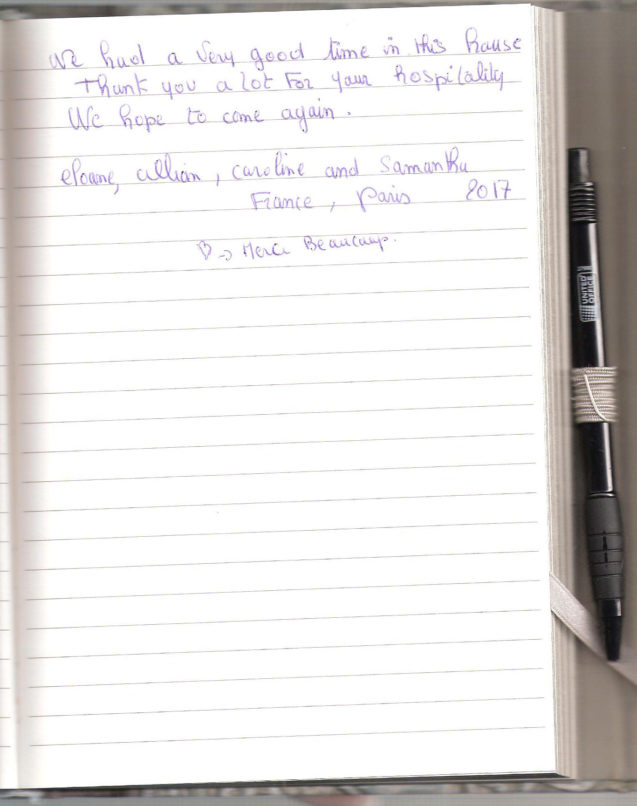 We had a very good time in this house
Thank you a lot For your hospitality
We hope to come again.
eloane, , caroline and Samantha
France, Paris 2017
♡ -> Merci Beaucoup.